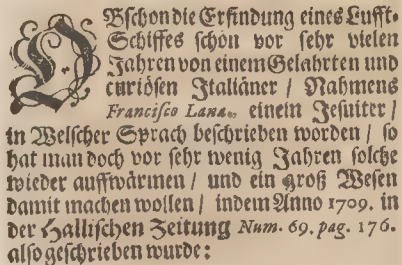 OBschon die Erfindung eines Lufft-
Schiffes schon vor sehr vielen
Jahren von einem Gelahrten und
curiösen Italiäner / Nahmens
Francisco Lana, einem Jesuiter /
in Welscher Sprach beschrieben worden / so
hat man doch vor sehr wenig Jahren solche
wieder auffwärmen / und ein groß Wesen
damit machen wollen / indem Anno 1709. in
der Hallischen Zeitung Num. 69. pag. 176.
also geschrieben wurde: